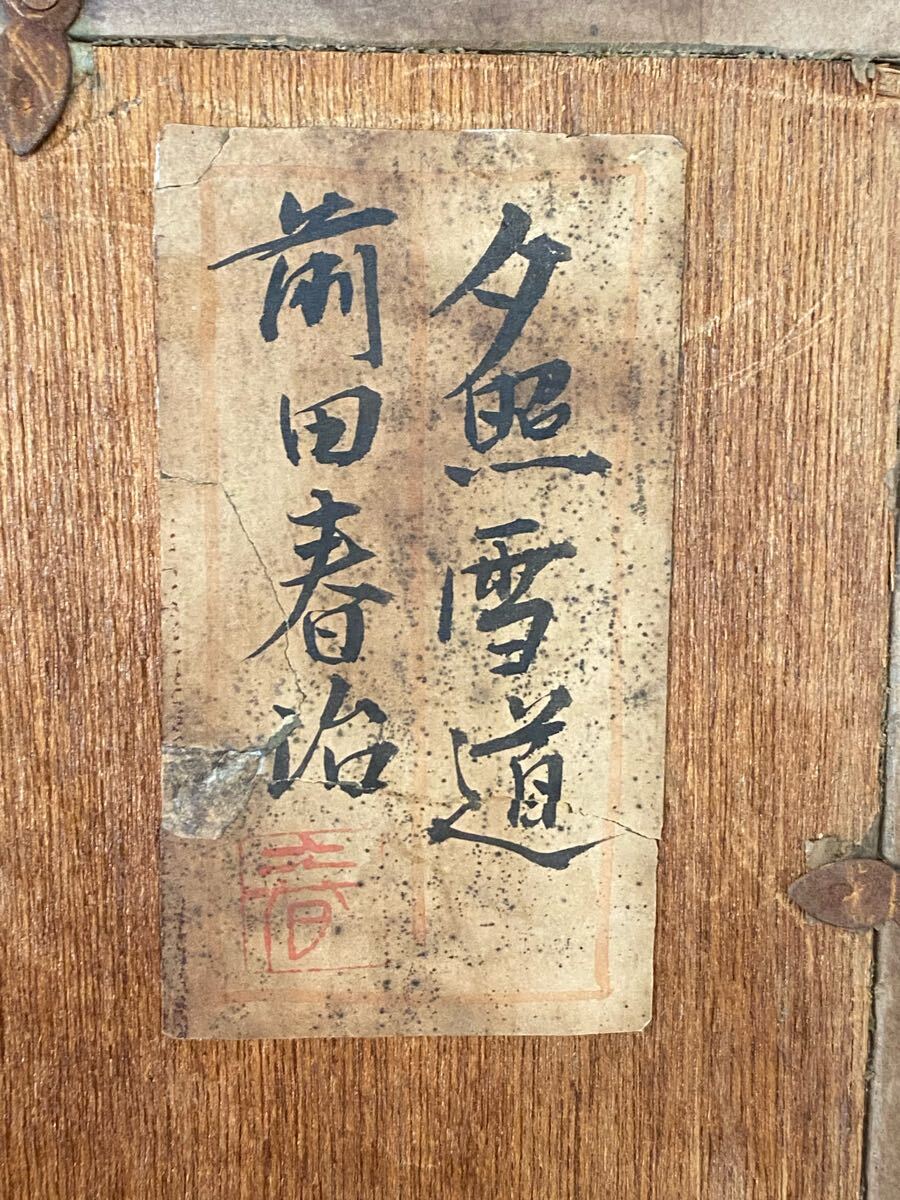 夕照雪道
前田春治
春